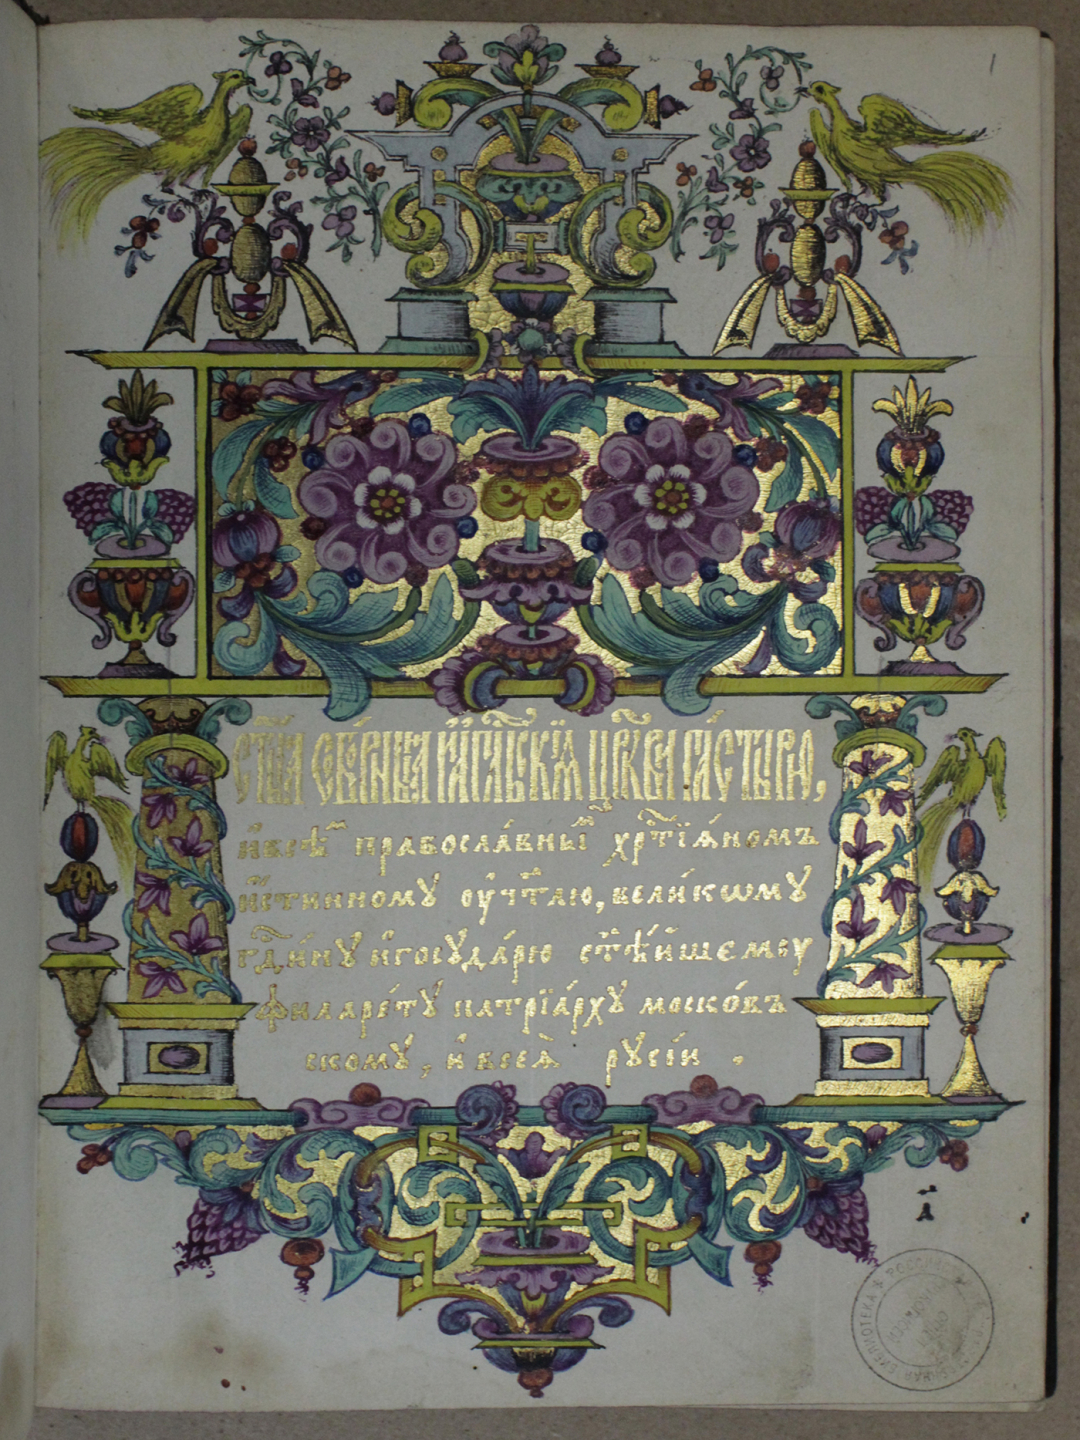 1
ст҃ыѧ собо́рныѧ и҆ а҆пⷭ҇льскїѧ цр҃кве па́стырю,
и҆ всѣ́мъ правосла́внымъ хрⷭ҇тїѧ́номъ
и҆́стинному оу҆чт҃лю, вели́кѡму
гдⷭ҇и́ну и҆ госуда́рю ст҃ѣ́йшемоу
филаре́ту патрїа́рху моско́въ
скому, и҆ всеѧ̀ рꙋсі́и .
а҃